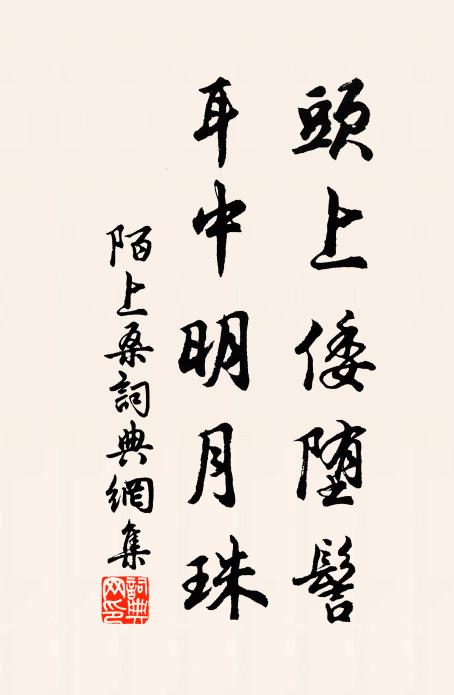 頭上倭墮髻
耳中明月珠
陌上桑詞典網集
詞典網印